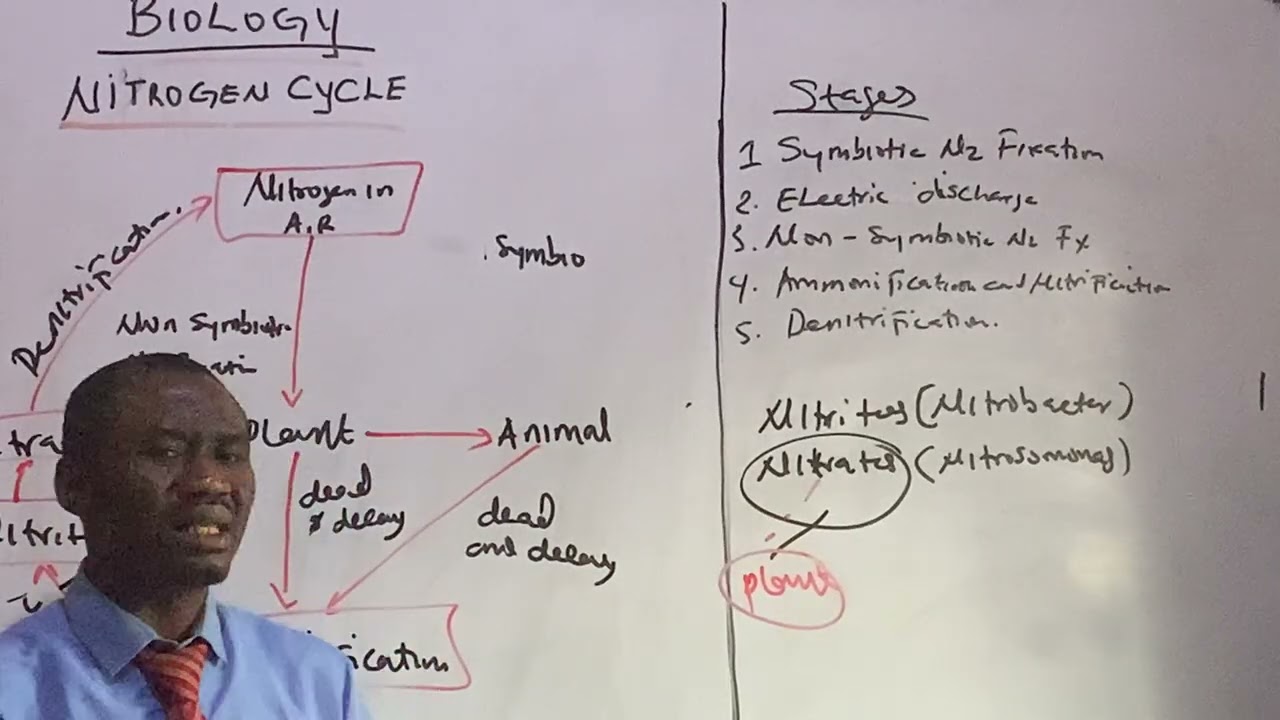 BIOLOGY
NITROGEN CYCLE
Nitrogen in
AIR
Denitrification.
Symbio
Non Symbiotic
Plant
Animal
dead
& delay
dead
and delay
ication
Stages
1 Symbiotic N2 Fixation
2. Electric discharge
3. Non-Symbiotic N2 Fx
4. Ammonification and Nitrification
5. Denitrification.
Nitrites (Nitrobacter)
Nitrates (Nitrosomonas)
plant